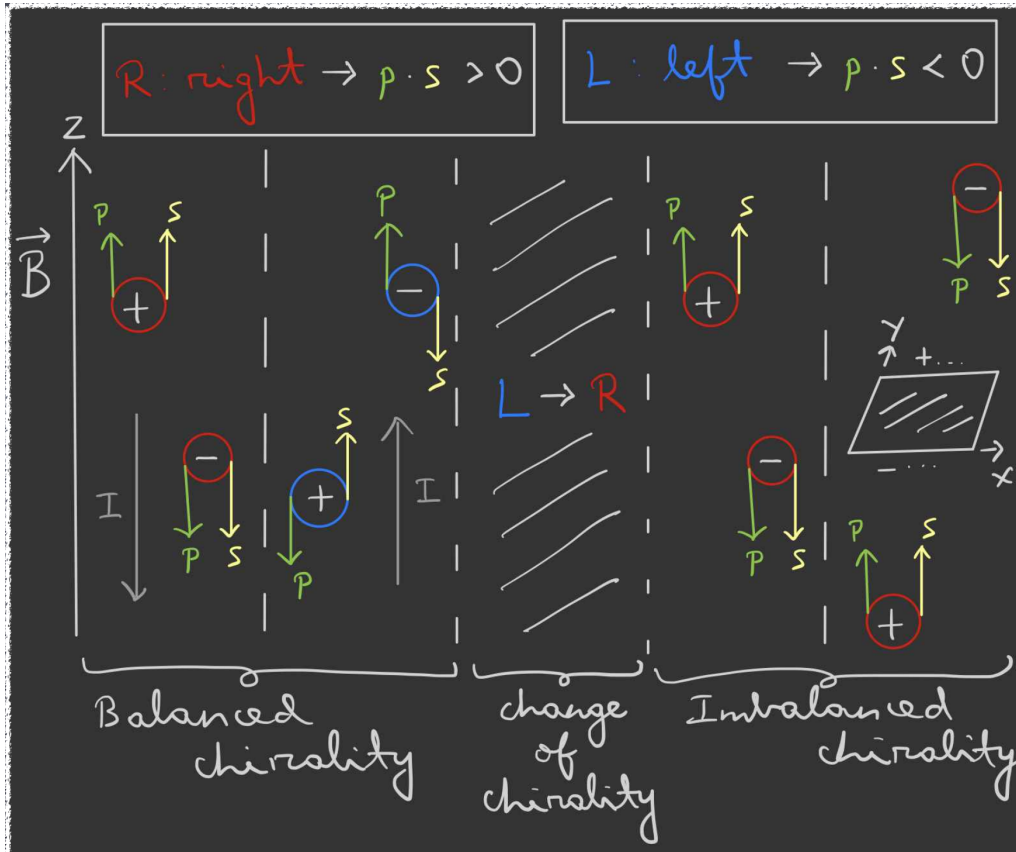 R: right → p · s > 0
L : left → p · s < 0
z
B
P S
+
P
−
S
I
−
P S
S
+
P
I
L → R
P S
+
−
P S
−
P S
y
+ ...
− ...
x
P S
+
Balanced
chirality
change
of
chirality
Imbalanced
chirality